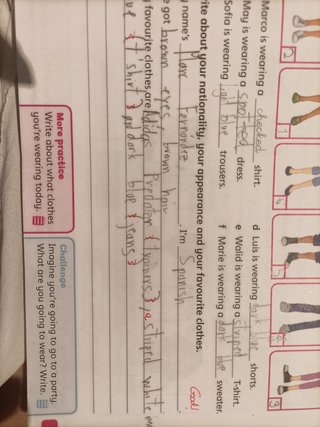 2
1
6
5
4
3
Marco is wearing a checked shirt.
May is wearing a spotted dress.
Sofia is wearing blue trousers.
d Luis is wearing dark blue shorts.
e Walid is wearing a striped T-shirt.
f Marie is wearing a dark blue sweater.
rite about your nationality, your appearance and your favourite clothes.
name's Marc Fernandez. I'm Spanish.
Good!
e got brown eyes brown hair
favourite clothes are Adidas Predator (trainers) a striped white
ue (t shirt) and dark blue (jeans)
More practice
Write about what clothes
you're wearing today.
Challenge
Imagine you're going to go to a party.
What are you going to wear? Write.